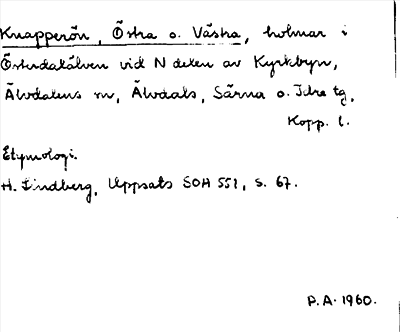 Knapperön, Östra o. Västra, holmar i
Österdalälven vid N delen av Kyrkbyn,
Älvdalens sn, Älvdals, Särna o. Idre tg,
Kopp. l.
Etymologi.
H. Lindberg, Uppsats SOH 551, s. 67.
P.A. 1960.